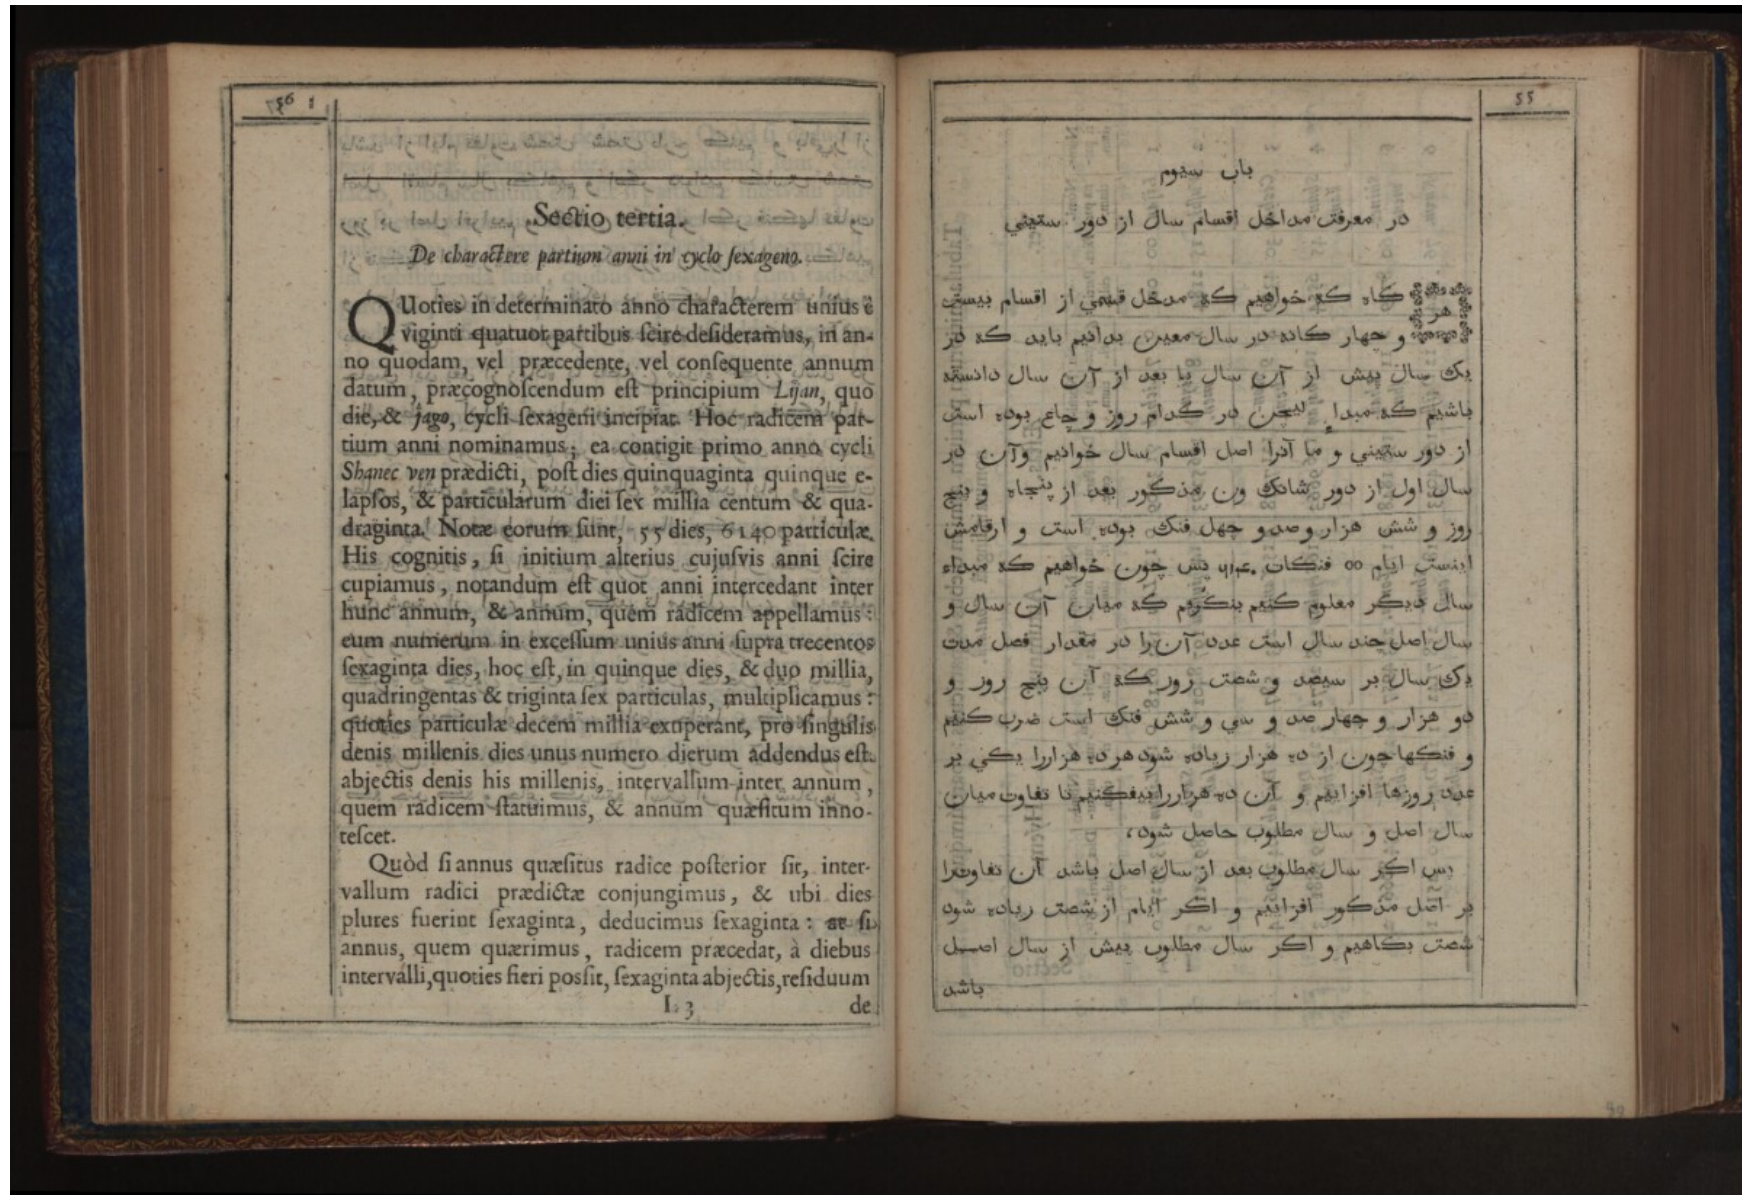 Sectio tertia.
De charactere partium anni in cyclo sexageno.
QUoties in determinato anno characterem unius è
viginti quatuor partibus scire desideramus, in an-
no quodam, vel præcedente, vel consequente annum
datum, præcognoscendum est principium Lijan, quo
die, & jago, cycli sexageni incipiat. Hoc radicem par-
tium anni nominamus; ea contigit primo anno cycli
Shanec ven prædicti, post dies quinquaginta quinque e-
lapsos, & particularum diei sex millia centum & qua-
draginta. Notæ eorum sunt, 55 dies, 6140 particulæ.
His cognitis, si initium alterius cujusvis anni scire
cupiamus, notandum est quot anni intercedant inter
hunc annum, & annum, quem radicem appellamus:
eum numerum in excessum unius anni supra trecentos
sexaginta dies, hoc est, in quinque dies, & duo millia,
quadringentas & triginta sex particulas, multiplicamus:
quoties particulæ decem millia exuperant, pro singulis
denis millenis dies unus numero dierum addendus est.
abjectis denis his millenis, intervallum inter annum,
quem radicem statuimus, & annum quæsitum inno-
tescet.
Quòd si annus quæsitus radice posterior sit, inter-
vallum radici prædictæ conjungimus, & ubi dies
plures fuerint sexaginta, deducimus sexaginta: at si
annus, quem quærimus, radicem præcedat, à diebus
intervalli, quoties fieri possit, sexaginta abjectis, residuum
L 3 de
55
باب سيوم
در معرفت مداخل اقسام سال از دور ستيني
هر كاه كه خواهيم كه مدخل قسمي از اقسام بيست
و چهار كانه در سال معين بدانيم بايد كه در
يك سال پيش از آن سال يا بعد از آن سال دانسته
باشيم كه مبداء ليچن در كدام روز و چاغ بوده است
از دور ستيني و ما آنرا اصل اقسام سال خوانيم وآن در
سال اول از دور شانك ون مذكور بعد از پنجاه و پنج
روز و شش هزار وصد و چهل فنك بوده است و ارقامش
اينست ايام ٥٥ فنكات ٦١٤٠ پس چون خواهيم كه مبداء
سال ديكر معلوم كنيم بنكريم كه ميان آن سال و
سال اصل چند سال است عدد آن را در مقدار فصل مدت
يك سال بر سيصد و شصت روز كه آن پنج روز و
دو هزار و چهار صد و سي و شش فنك است ضرب كنيم
و فنكها چون از ده هزار زياده شود هر ده هزاررا يكي بر
عدد روزها افزاييم و آن ده هزاررا بيفكنيم تا تفاوت ميان
سال اصل و سال مطلوب حاصل شود،
پس اكر سال مطلوب بعد از سال اصل باشد آن تفاوترا
بر اصل مذكور افزاييم و اكر ايام از شصت زياده شود
شصت بكاهيم و اكر سال مطلوب پيش از سال اصل
باشد